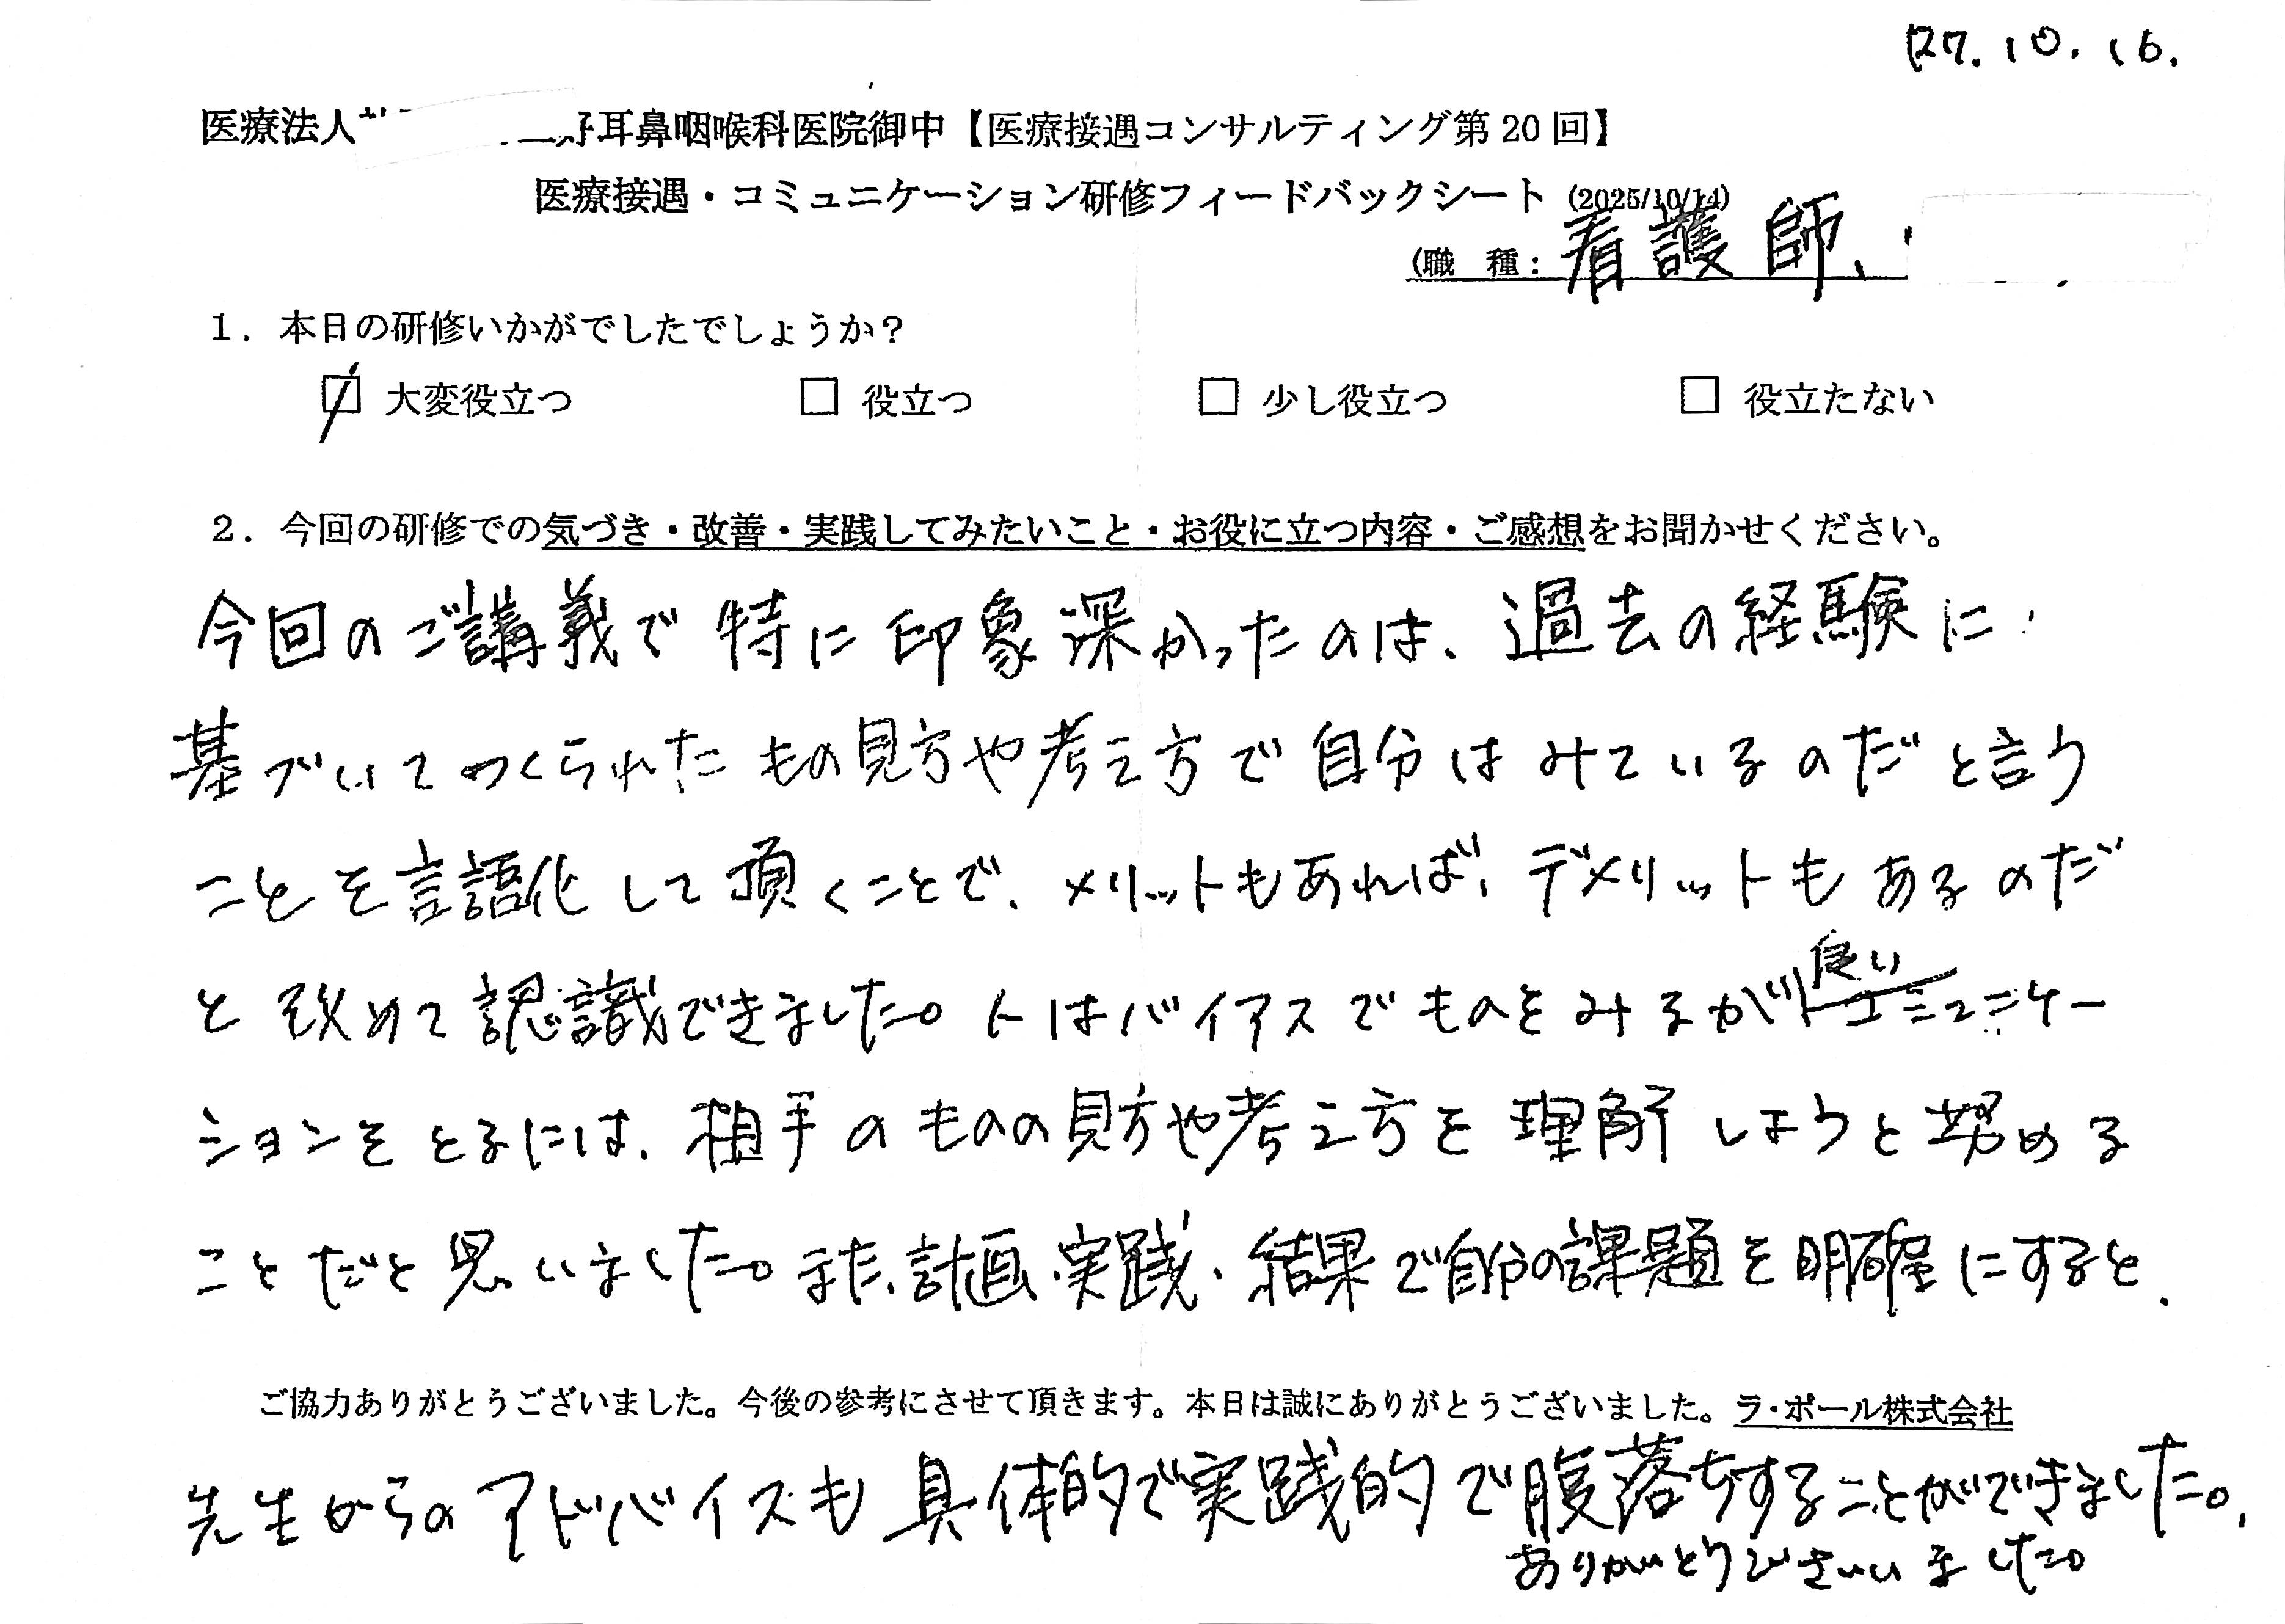 R7.10.16.
医療法人 耳鼻咽喉科医院御中【医療接遇コンサルティング第20回】
医療接遇・コミュニケーション研修フィードバックシート (2025/10/14)
(職 種: 看護師、
1. 本日の研修いかがでしたでしょうか?
☑ 大変役立つ □ 役立つ □ 少し役立つ □ 役立たない
2. 今回の研修での気づき・改善・実践してみたいこと・お役に立つ内容・ご感想をお聞かせください。
今回のご講義で特に印象深かったのは、過去の経験に
基づいてつくられたもの見方や考え方で自分はみているのだと言う
ことを言語化して頂くことで、メリットもあれば、デメリットもあるのだ
と改めて認識できました。人はバイアスでものをみるが良いコミュニケー
ションをとるには、相手のものの見方や考え方を理解しようと努める
ことだと思いました。また、計画・実践・結果で自分の課題を明確にすると、
ご協力ありがとうございました。今後の参考にさせて頂きます。本日は誠にありがとうございました。ラ・ポール株式会社
先生からのアドバイスも具体的で実践的で腹落ちすることができました。
ありがとうございました。